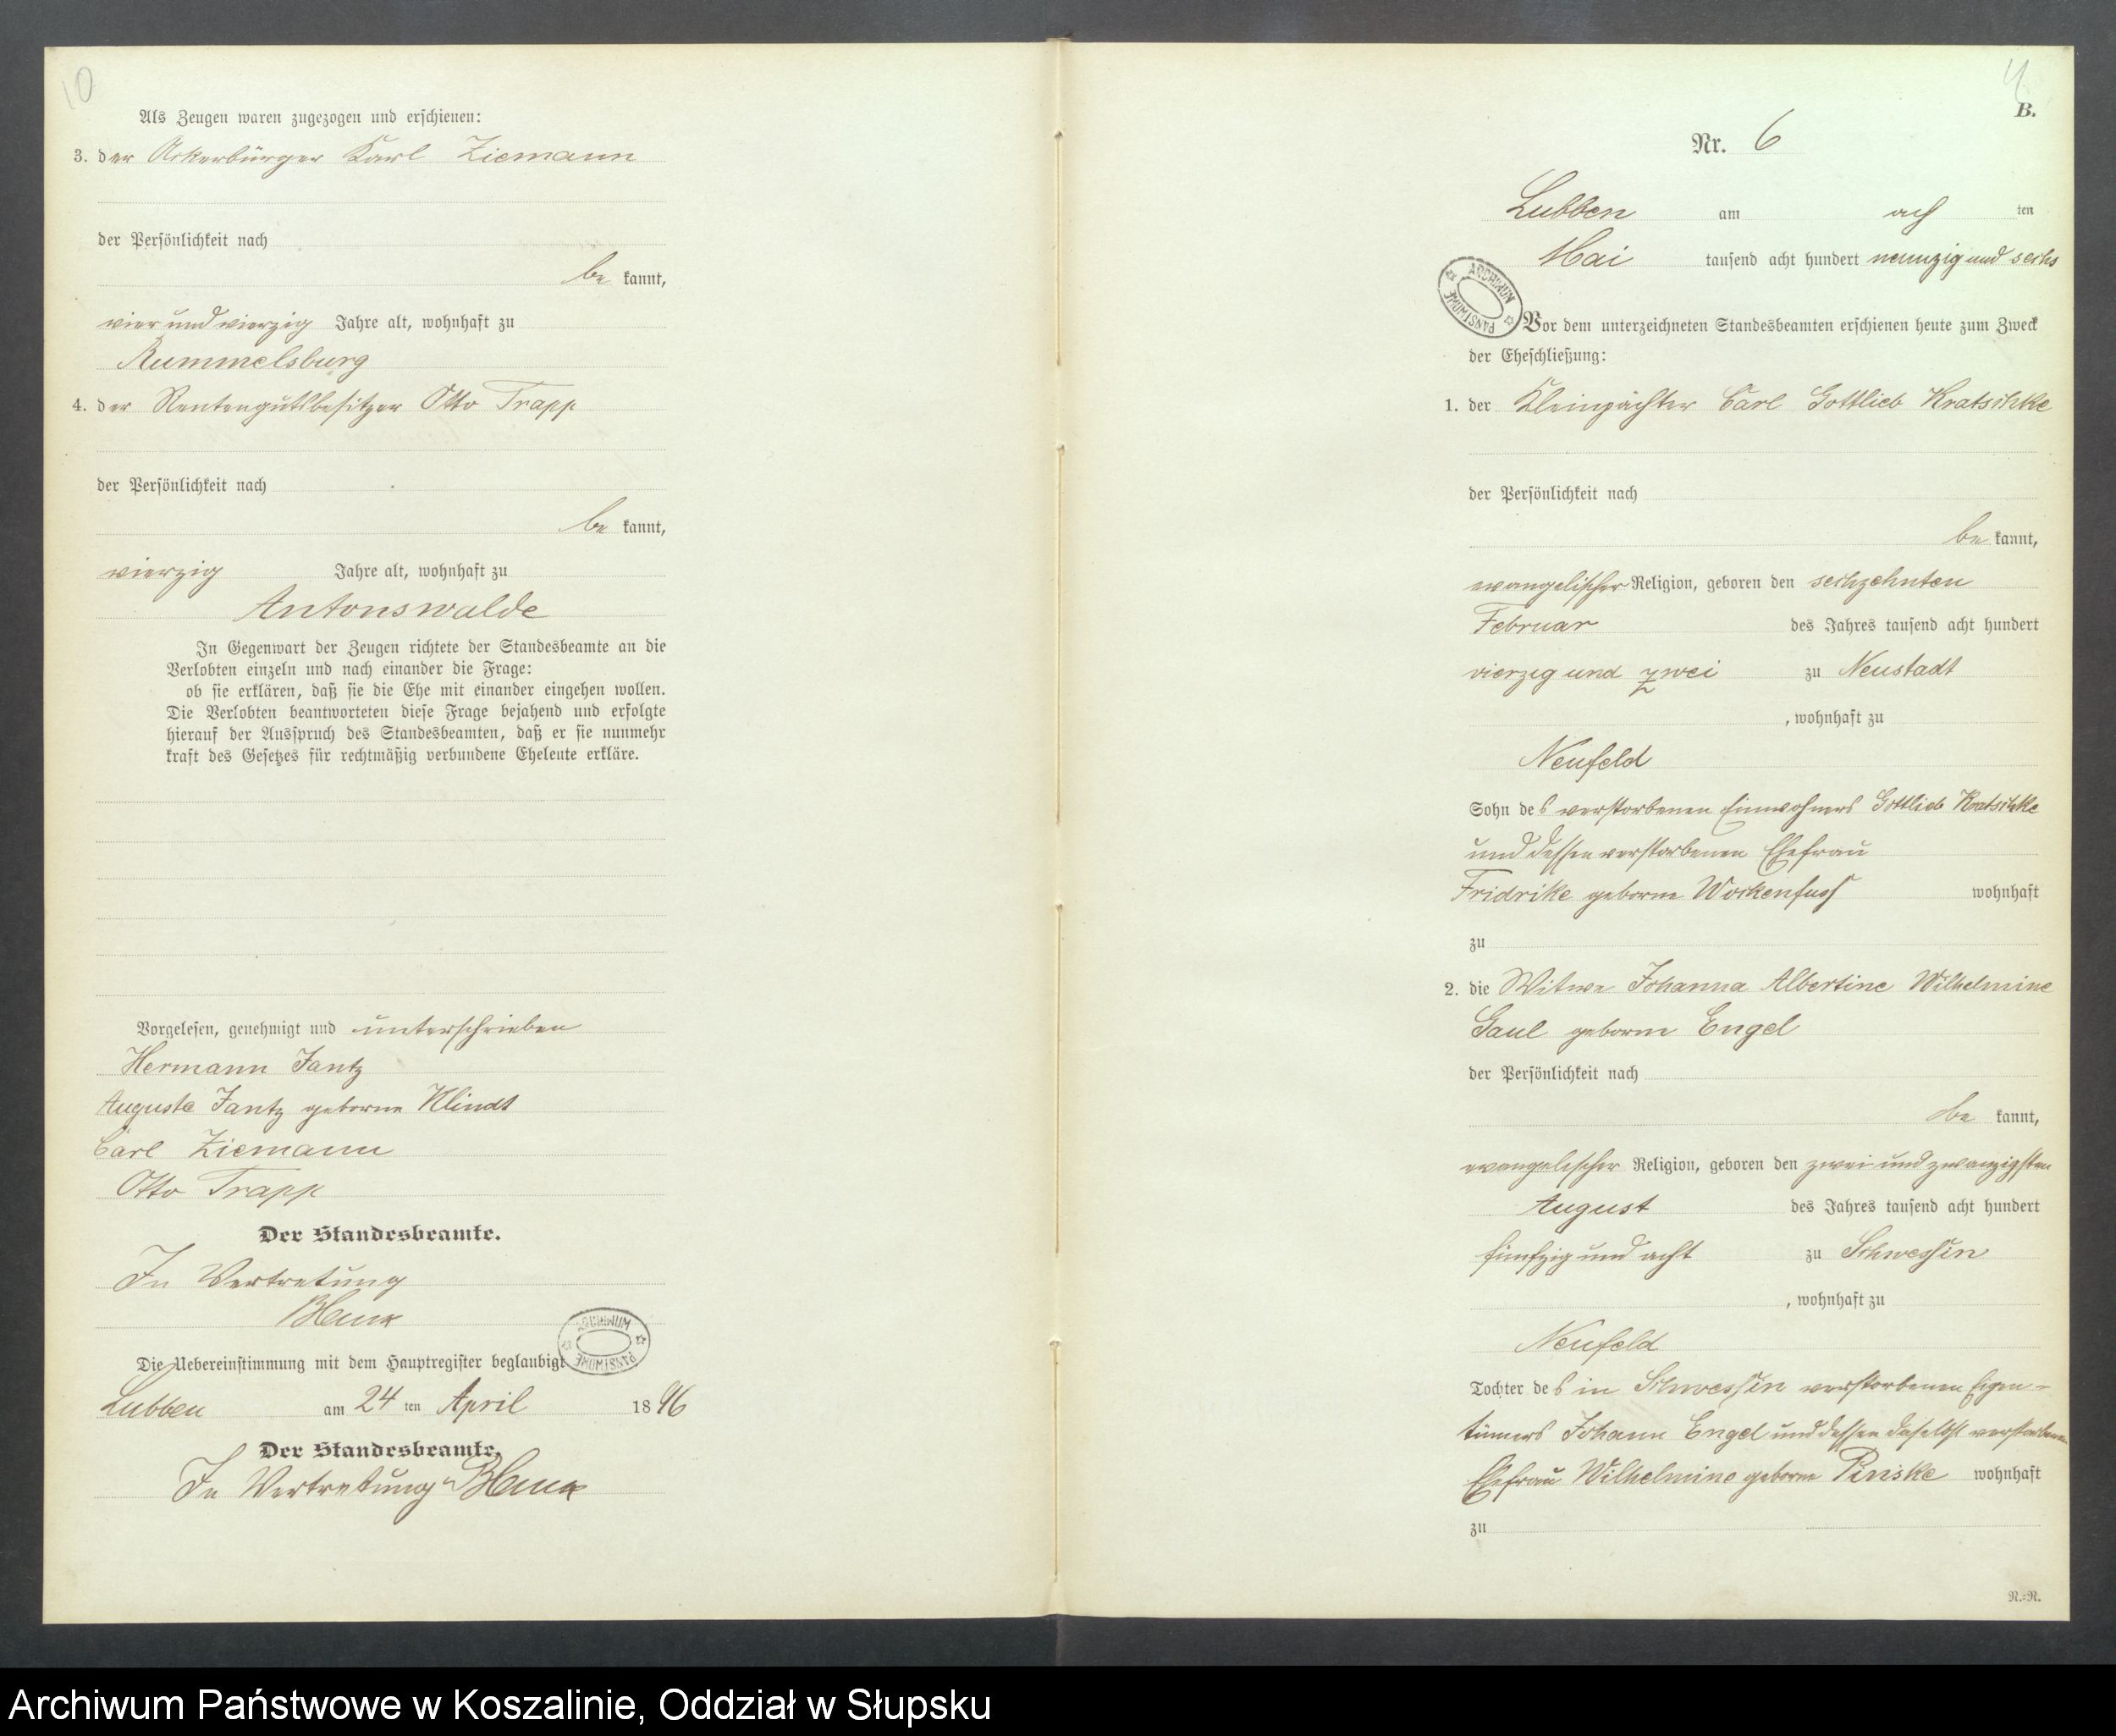 10
Als Zeugen waren zugezogen und erschienen:
3. der Ackerbürger Karl Ziemann
der Persönlichkeit nach
be kannt,
vier und vierzig Jahre alt, wohnhaft zu
Rummelsburg
4. der Rentengutsbesitzer Otto Trapp
der Persönlichkeit nach
be kannt,
vierzig Jahre alt, wohnhaft zu
Antonswalde
In Gegenwart der Zeugen richtete der Standesbeamte an die
Verlobten einzeln und nach einander die Frage:
ob sie erklären, daß sie die Ehe mit einander eingehen wollen.
Die Verlobten beantworteten diese Frage bejahend und erfolgte
hierauf der Ausspruch des Standesbeamten, daß er sie nunmehr
kraft des Gesetzes für rechtmäßig verbundene Eheleute erkläre.
Vorgelesen, genehmigt und unterschrieben
Hermann Jantz
Auguste Jantz geborne Klindt
Carl Ziemann
Otto Trapp
Der Standesbeamte.
In Vertretung
ARCHIWUM PAŃSTWOWE
Die Uebereinstimmung mit dem Hauptregister beglaubigt
Lubben am 24 ten April 18 96
Der Standesbeamte.
In Vertretung
B.
Nr. 6
Lubben am ach ten
Mai tausend acht hundert neunzig und sechs
ARCHIWUM PAŃSTWOWE
Vor dem unterzeichneten Standesbeamten erschienen heute zum Zweck
der Eheschließung:
1. der Kleinpächter Carl Gottlieb Kratschke
der Persönlichkeit nach
be kannt,
evangelischer Religion, geboren den sechzehnten
Februar des Jahres tausend acht hundert
vierzig und zwei zu Neustadt
, wohnhaft zu
Neufeld
Sohn des verstorbenen Einwohners Gottlieb Kratschke
und dessen verstorbenen Ehefrau
Fridrike geborne Wockenfuss wohnhaft
zu
2. die Witwe Johanna Albertine Wilhelmine
Gaul geborne Engel
der Persönlichkeit nach
be kannt,
evangelischer Religion, geboren den zwei und zwanzigsten
August des Jahres tausend acht hundert
fünfzig und acht zu Schwessin
, wohnhaft zu
Neufeld
Tochter des in Schwessin verstorbenen Eigen-
tümers Johann Engel und dessen daselbst verstorbenen
Ehefrau Wilhelmine geborne Piriske wohnhaft
zu
N.=N.
Archiwum Państwowe w Koszalinie, Oddział w Słupsku